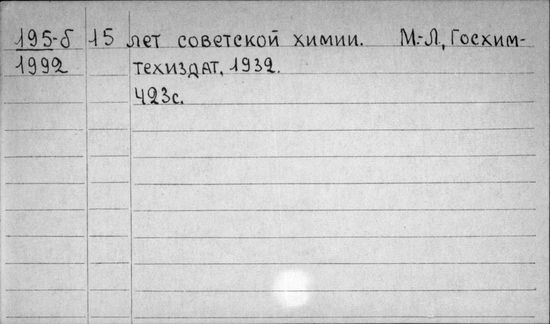 195-б 15 лет советской химии. М.-Л, Госхим-
1992 техиздат, 1932.
423с.